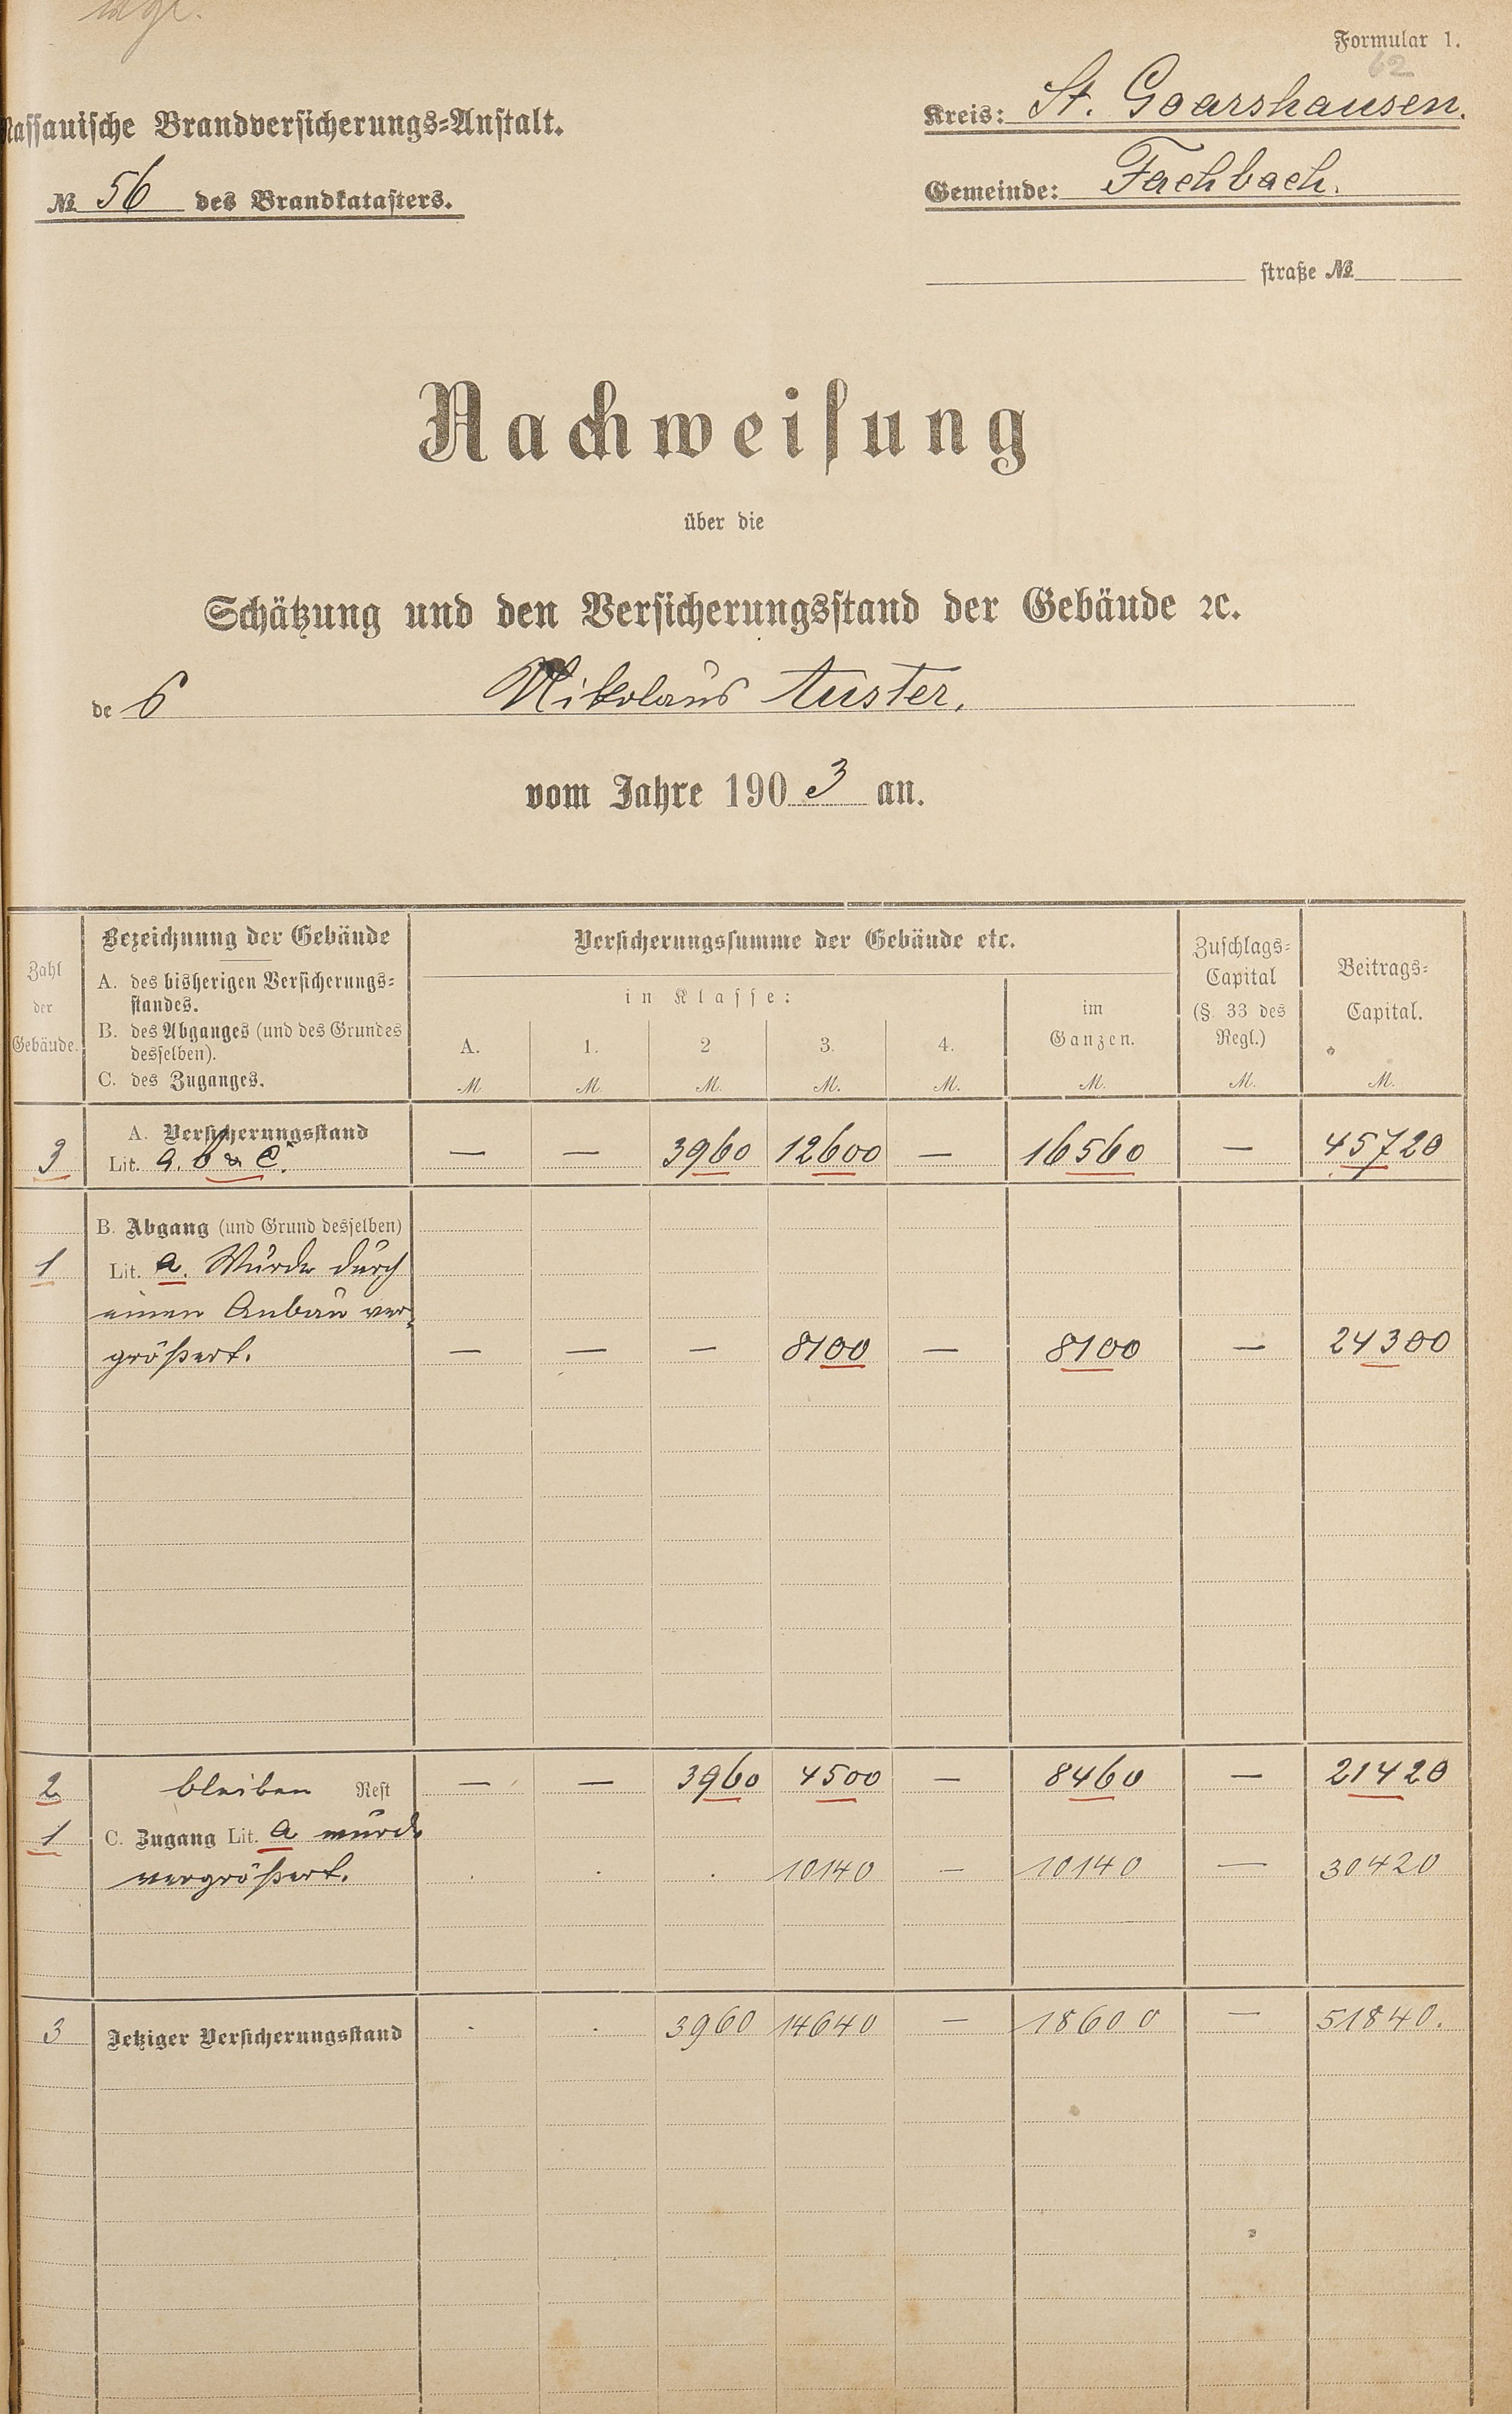 Formular 1.
62
Nassauische Brandversicherungs-Anstalt.
Kreis: St. Goarshausen.
№ 56 des Brandkatasters.
Gemeinde: Fachbach.
straße №
Nachweisung
über die
Schätzung und den Versicherungsstand der Gebäude ꝛc.
des Nikolaus Auster.
vom Jahre 1903 an.
Zahl der Gebäude.
Bezeichnung der Gebäude
A. des bisherigen Versicherungs-
standes.
B. des Abganges (und des Grundes
desselben).
C. des Zuganges.
Versicherungssumme der Gebäude etc.
in Klasse:
A. 1. 2 3. 4.
im
Ganzen.
Zuschlags-
Capital
(§. 33 des
Regl.)
Beitrags-
Capital.
M M. M. M. M. M. M. M.
A. Versicherungsstand
3 Lit. a. b & c. — — 3960 12600 — 16560 — 45720
B. Abgang (und Grund desselben)
1 Lit. a. Wurde durch
einen Anbau ver-
größert. — — — 8100 — 8100 — 24300
2 bleiben Rest — — 3960 4500 — 8460 — 21420
1 C. Zugang Lit. a wurde
vergrößert. . . . 10140 — 10140 — 30420
3 Jetziger Versicherungsstand . . 3960 14640 — 18600 — 51840.